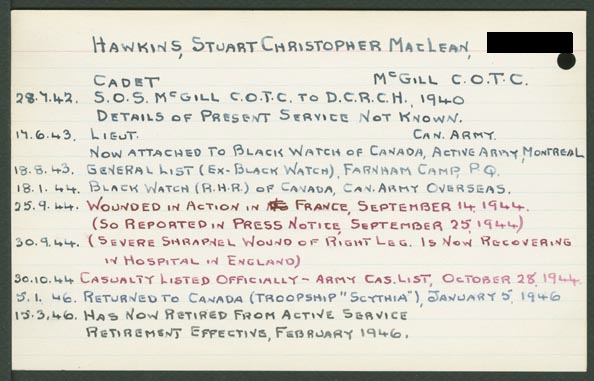 HAWKINS, STUART CHRISTOPHER MACLEAN,
CADET McGILL C.O.T.C.
28.7.42. S.O.S. McGILL C.O.T.C. TO D.C.R.C.H., 1940
DETAILS OF PRESENT SERVICE NOT KNOWN.
17.6.43. LIEUT. CAN. ARMY.
NOW ATTACHED TO BLACK WATCH OF CANADA, ACTIVE ARMY, MONTREAL
18.8.43. GENERAL LIST (EX-BLACK WATCH), FARNHAM CAMP, P.Q.
18.1.44. BLACK WATCH (R.H.R.) OF CANADA, CAN. ARMY OVERSEAS.
25.9.44. WOUNDED IN ACTION IN FRANCE, SEPTEMBER 14, 1944.
(SO REPORTED IN PRESS NOTICE, SEPTEMBER 25, 1944)
30.9.44. (SEVERE SHRAPNEL WOUND OF RIGHT LEG. IS NOW RECOVERING
IN HOSPITAL IN ENGLAND)
30.10.44 CASUALTY LISTED OFFICIALLY - ARMY CAS. LIST, OCTOBER 28, 1944.
5.1.46. RETURNED TO CANADA (TROOPSHIP "SCYTHIA"), JANUARY 5, 1946
15.3.46. HAS NOW RETIRED FROM ACTIVE SERVICE
RETIREMENT EFFECTIVE, FEBRUARY 1946.